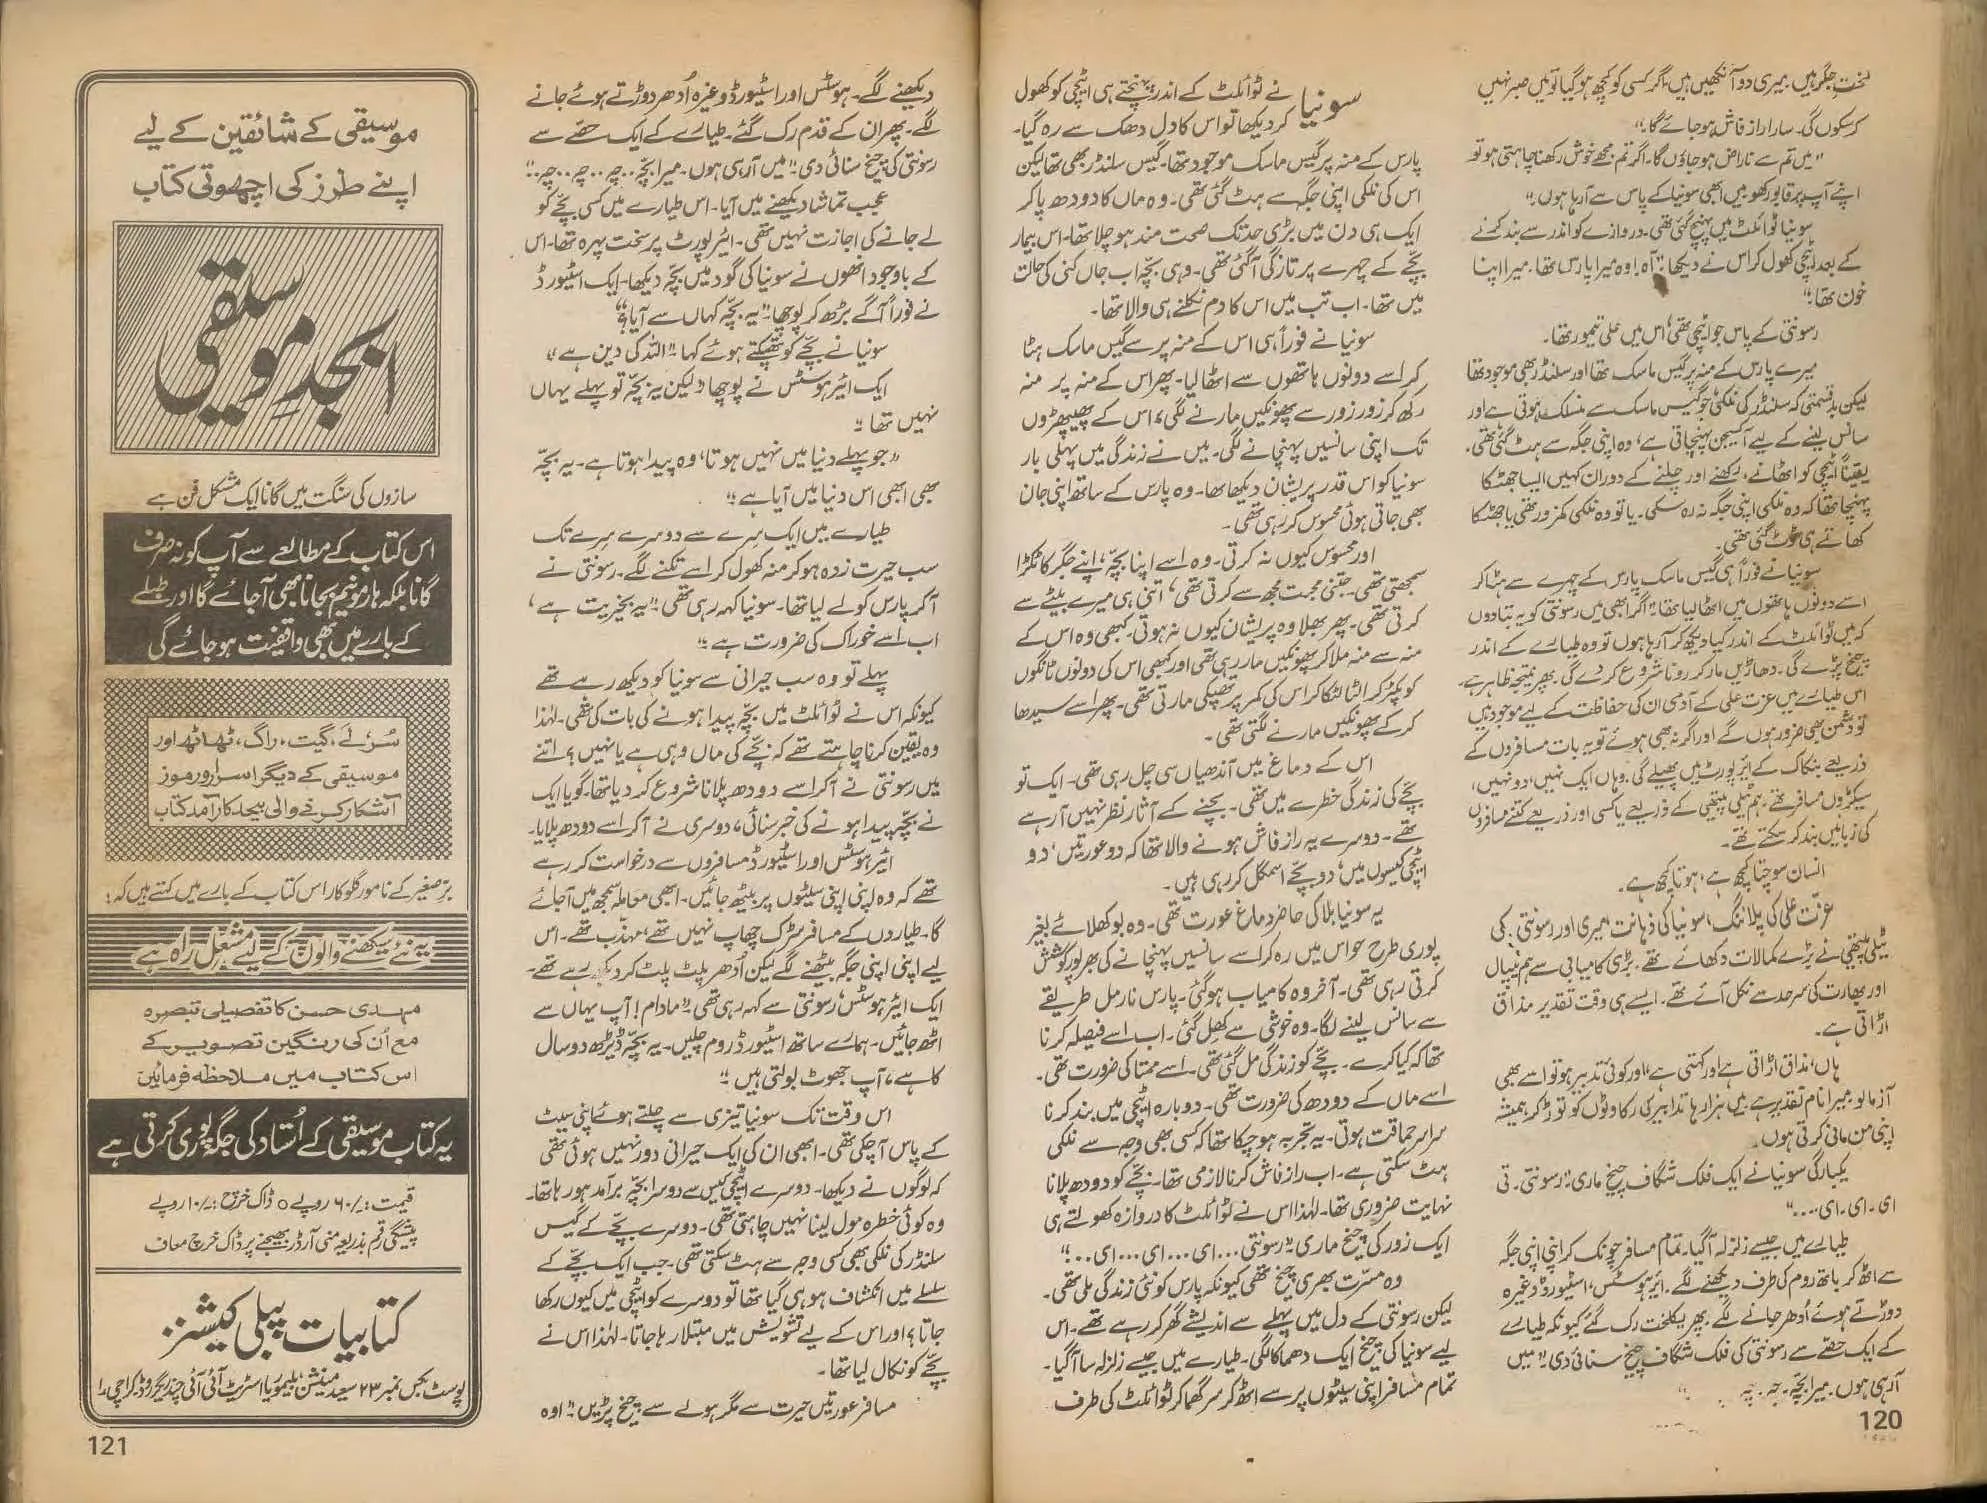 لختِ جگر ہیں۔ میری دو آنکھیں ہیں، اگر کسی کو کچھ ہوگیا تو میں صبر نہیں
کر سکوں گی۔ سارا راز فاش ہوجائے گا۔"
"میں تم سے ناراض ہوجاؤں گا۔ اگر تم مجھے خوش رکھنا چاہتی ہو تو
اپنے آپ پر قابو رکھو۔ میں ابھی سونیا کے پاس سے آرہا ہوں۔"
سونیا ٹوائلٹ میں پہنچ گئی تھی۔ دروازے کو اندر سے بند کرنے
کے بعد اٹیچی کھول کر اس نے دیکھا۔ "آہ! وہ میرا پارس تھا۔ میرا اپنا
خون تھا۔"
رسونتی کے پاس جو اٹیچی تھی، اس میں علی تیمور تھا۔
میرے پارس کے منہ پر گیس ماسک تھا اور سلنڈر بھی موجود تھا
لیکن بدقسمتی کہ سلنڈر کی نلکی جو گیس ماسک سے منسلک ہوتی ہے اور
سانس لینے کے لیے آکسیجن پہنچاتی ہے، وہ اپنی جگہ سے ہٹ گئی تھی۔
یقیناً اٹیچی کو اٹھانے، رکھنے اور چلنے کے دوران کہیں ایسا جھٹکا
پہنچا تھا کہ وہ نلکی اپنی جگہ نہ رہ سکی۔ یا تو وہ نلکی کمزور تھی یا جھٹکا
کھاتے ہی ٹوٹ گئی تھی۔
سونیا نے فوراً ہی گیس ماسک پارس کے چہرے سے ہٹا کر
اسے دونوں ہاتھوں میں اٹھا لیا تھا۔ اگر ابھی میں رسونتی کو یہ بتا دوں
کہ میں ٹوائلٹ کے اندر کیا دیکھ کر آرہا ہوں تو وہ طیارے کے اندر
چیخ پڑے گی۔ دھاڑیں مار کر رونا شروع کر دے گی۔ پھر نتیجہ ظاہر ہے۔
اس طیارے میں عزت علی کے آدمی ان کی حفاظت کے لیے موجود ہیں
تو دشمن بھی ضرور ہوں گے اور اگر نہ بھی ہوئے تو یہ بات مسافروں کے
ذریعے بنکاک کے ایئرپورٹ میں پھیلے گی۔ وہاں ایک نہیں، دو نہیں،
سیکڑوں مسافر تھے۔ ہم ٹیلی پیتھی کے ذریعے یا کسی اور ذریعے کتنے مسافروں
کی زبانیں بند کر سکتے تھے۔
انسان سوچتا کچھ ہے، ہوتا کچھ ہے۔
عزت علی کی پلاننگ، سونیا کی ذہانت، میری اور رسونتی کی
ٹیلی پیتھی نے بڑے کمالات دکھائے تھے۔ بڑی کامیابی سے ہم نیپال
اور بھارت کی سرحد سے نکل آئے تھے۔ ایسے ہی وقت تقدیر مذاق
اڑاتی ہے۔
ہاں، مذاق اڑاتی ہے اور کہتی ہے، اور کوئی تدبیر ہو تو اسے بھی
آزما لو۔ میرا نام تقدیر ہے۔ میں ہزار ہا تدابیر کی رکاوٹوں کو توڑ کر ہمیشہ
اپنی من مانی کرتی ہوں۔
یکبارگی سونیا نے ایک فلک شگاف چیخ ماری۔ "رسونتی۔ تی
ای۔ ای۔ ای۔..."
طیارے میں جیسے زلزلہ آگیا۔ تمام مسافر چونک کر اپنی اپنی جگہ
سے اٹھ کر باتھ روم کی طرف دیکھنے لگے۔ ایئرہوسٹس، اسٹیورڈ وغیرہ
دوڑتے ہوئے اُدھر جانے لگے۔ پھر یکلخت رک گئے کیونکہ طیارے
کے ایک حصے سے رسونتی کی فلک شگاف چیخ سنائی دی۔ "میں
آرہی ہوں۔ میرا بچّہ۔ چہ۔ چہ
120
سونیا نے ٹوائلٹ کے اندر پہنچتے ہی اٹیچی کو کھول
کر دیکھا تو اس کا دل دھک سے رہ گیا۔
پارس کے منہ پر گیس ماسک موجود تھا۔ گیس سلنڈر بھی تھا لیکن
اس کی نلکی اپنی جگہ سے ہٹ گئی تھی۔ وہ ماں کا دودھ پا کر
ایک ہی دن میں بڑی حد تک صحت مند ہو چلا تھا۔ اس بیمار
بچّے کے چہرے پر تازگی آگئی تھی۔ وہی بچّہ اب جاں کنی کی حالت
میں تھا۔ اب تب میں اس کا دم نکلنے ہی والا تھا۔
سونیا نے فوراً ہی اس کے منہ پر سے گیس ماسک ہٹا
کر اسے دونوں ہاتھوں سے اٹھا لیا۔ پھر اس کے منہ پر منہ
رکھ کر زور زور سے پھونکیں مارنے لگی، اس کے پھیپھڑوں
تک اپنی سانسیں پہنچانے لگی۔ میں نے زندگی میں پہلی بار
سونیا کو اس قدر پریشان دیکھا تھا۔ وہ پارس کے ساتھ اپنی جان
بھی جاتی ہوئی محسوس کر رہی تھی۔
اور محسوس کیوں نہ کرتی۔ وہ اسے اپنا بچّہ، اپنے جگر کا ٹکڑا
سمجھتی تھی۔ جتنی محبت مجھ سے کرتی تھی، اتنی ہی میرے بیٹے سے
کرتی تھی۔ پھر بھلا وہ پریشان کیوں نہ ہوتی۔ کبھی وہ اس کے
منہ سے منہ ملا کر پھونکیں مار رہی تھی اور کبھی اس کی دونوں ٹانگوں
کو پکڑ کر الٹا لٹکا کر اس کی کمر پر تھپکی مارتی تھی۔ پھر اسے سیدھا
کر کے پھونکیں مارنے لگتی تھی۔
اس کے دماغ میں آندھیاں سی چل رہی تھی۔ ایک تو
بچّے کی زندگی خطرے میں تھی۔ بچنے کے آثار نظر نہیں آرہے
تھے۔ دوسرے یہ راز فاش ہونے والا تھا کہ دو عورتیں، دو
اٹیچی کیسوں میں، دو بچّے اسمگل کر رہی ہیں۔
یہ سونیا بلا کی حاضر دماغ عورت تھی۔ وہ بوکھلائے بغیر
پوری طرح حواس میں رہ کر اسے سانسیں پہنچانے کی بھرپور کوشش
کرتی رہی تھی۔ آخر وہ کامیاب ہوگئی۔ پارس نارمل طریقے
سے سانس لینے لگا۔ وہ خوشی سے کھِل گئی۔ اب اسے فیصلہ کرنا
تھا کہ کیا کرے۔ بچّے کو زندگی مل گئی تھی۔ اسے ممتا کی ضرورت تھی۔
اسے ماں کے دودھ کی ضرورت تھی۔ دوبارہ اٹیچی میں بند کرنا
سراسر حماقت ہوتی۔ یہ تجربہ ہو چکا تھا کہ کسی بھی وجہ سے نلکی
ہٹ سکتی ہے۔ اب راز فاش کرنا لازمی تھا۔ بچّے کو دودھ پلانا
نہایت ضروری تھا۔ لہٰذا اس نے ٹوائلٹ کا دروازہ کھولتے ہی
ایک زور کی چیخ ماری۔ "رسونتی... ای... ای... ای..."
وہ مسرّت بھری چیخ تھی کیونکہ پارس کو نئی زندگی ملی تھی۔
لیکن رسونتی کے دل میں پہلے سے اندیشے گھر کر رہے تھے۔ اس
لیے سونیا کی چیخ ایک دھماکا لگی۔ طیارے میں جیسے زلزلہ سا آگیا۔
تمام مسافر اپنی سیٹوں پر سے اٹھ کر سر گھما کر ٹوائلٹ کی طرف
دیکھنے لگے۔ ہوسٹس اور اسٹیورڈ وغیرہ اُدھر دوڑتے ہوئے جانے
لگے۔ پھر ان کے قدم رک گئے۔ طیارے کے ایک حصّے سے
رسونتی کی چیخ سنائی دی۔ "میں آرہی ہوں۔ میرا بچّہ.. چہ.. چہ.. چہ.."
عجیب تماشا دیکھنے میں آیا۔ اس طیارے میں کسی بچّے کو
لے جانے کی اجازت نہیں تھی۔ ایئرپورٹ پر سخت پہرہ تھا۔ اس
کے باوجود انھوں نے سونیا کی گود میں بچّہ دیکھا۔ ایک اسٹیورڈ
نے فوراً آگے بڑھ کر پوچھا۔ "یہ بچّہ کہاں سے آیا؟"
سونیا نے بچّے کو تھپکتے ہوئے کہا۔ "اللہ کی دین ہے"
ایک ایئرہوسٹس نے پوچھا "لیکن یہ بچّہ تو پہلے یہاں
نہیں تھا۔"
"جو پہلے دنیا میں نہیں ہوتا، وہ پیدا ہوتا ہے۔ یہ بچّہ
بھی ابھی اس دنیا میں آیا ہے۔"
طیارے میں ایک سِرے سے دوسرے سِرے تک
سب حیرت زدہ ہو کر منہ کھول کر اسے تکنے لگے۔ رسونتی نے
آکر پارس کو لے لیا تھا۔ سونیا کہہ رہی تھی۔ "یہ بخیریت ہے،
اب اسے خوراک کی ضرورت ہے۔"
پہلے تو وہ سب حیرانی سے سونیا کو دیکھ رہے تھے
کیونکہ اس نے ٹوائلٹ میں بچّہ پیدا ہونے کی بات کی تھی۔ لہٰذا
وہ یقین کرنا چاہتے تھے کہ بچّے کی ماں وہی ہے یا نہیں؟ اتنے
میں رسونتی نے آکر اسے دودھ پلانا شروع کر دیا تھا۔ گویا ایک
نے بچّہ پیدا ہونے کی خبر سنائی، دوسری نے آکر اسے دودھ پلایا۔
ایئرہوسٹس اور اسٹیورڈ مسافروں سے درخواست کر رہے
تھے کہ وہ اپنی اپنی سیٹوں پر بیٹھ جائیں۔ ابھی معاملہ سمجھ میں آجائے
گا۔ طیاروں کے مسافر سڑک چھاپ نہیں تھے، مہذّب تھے۔ اس
لیے اپنی اپنی جگہ بیٹھنے لگے لیکن اُدھر پلٹ پلٹ کر دیکھ رہے تھے۔
ایک ایئرہوسٹس، رسونتی سے کہہ رہی تھی۔ "مادام! آپ یہاں سے
اٹھ جائیں۔ ہمارے ساتھ اسٹیورڈ روم چلیں۔ یہ بچّہ ڈیڑھ دو سال
کا ہے، آپ جھوٹ بولتی ہیں۔"
اس وقت تک سونیا تیزی سے چلتے ہوئے اپنی سیٹ
کے پاس آچکی تھی۔ ابھی ان کی ایک حیرانی دور نہیں ہوئی تھی
کہ لوگوں نے دیکھا۔ دوسرے اٹیچی کیس سے دوسرا بچّہ برآمد ہو رہا تھا۔
وہ کوئی خطرہ مول لینا نہیں چاہتی تھی۔ دوسرے بچّے کے گیس
سلنڈر کی نلکی بھی کسی وجہ سے ہٹ سکتی تھی۔ جب ایک بچّے کے
سلسلے میں انکشاف ہو ہی گیا تھا تو دوسرے کو اٹیچی میں کیوں رکھا
جاتا؟ اور اس کے لیے تشویش میں مبتلا رہا جاتا۔ لہٰذا اس نے
بچّے کو نکال لیا تھا۔
مسافر عورتیں حیرت سے مگر ہولے سے چیخ پڑیں۔ "اوہ
موسیقی کے شائقین کے لیے
اپنے طرز کی اچھوتی کتاب
ابجدِ موسیقی
سازوں کی سنگت میں گانا ایک مشکل فن ہے
اس کتاب کے مطالعے سے آپ کو نہ صرف
گانا بلکہ ہارمونیم بجانا بھی آجائے گا اور طبلے
کے بارے میں بھی واقفیت ہوجائے گی
سُر، لَے، گیت، راگ، ٹھاٹھ اور
موسیقی کے دیگر اسرار و رموز
آشکار کرنے والی بیحد کارآمد کتاب
برّصغیر کے نامور گلوکار اس کتاب کے بارے میں کہتے ہیں کہ:
یہ نئے سیکھنے والوں کے لیے مشعل راہ ہے
مہدی حسن کا تفصیلی تبصرہ
مع اُن کی رنگین تصویر کے
اس کتاب میں ملاحظہ فرمائیں
یہ کتاب موسیقی کے اُستاد کی جگہ پوری کرتی ہے
قیمت: -/۶۰ روپے ○ ڈاک خرچ: -/۱۰ روپے
پیشگی رقم بذریعہ منی آرڈر بھیجنے پر ڈاک خرچ معاف
کتابیات پبلی کیشنز
پوسٹ بکس نمبر ۲۳ سعید مینشن، بلیموریا اسٹریٹ آئی آئی چندریگر روڈ کراچی ۱
121